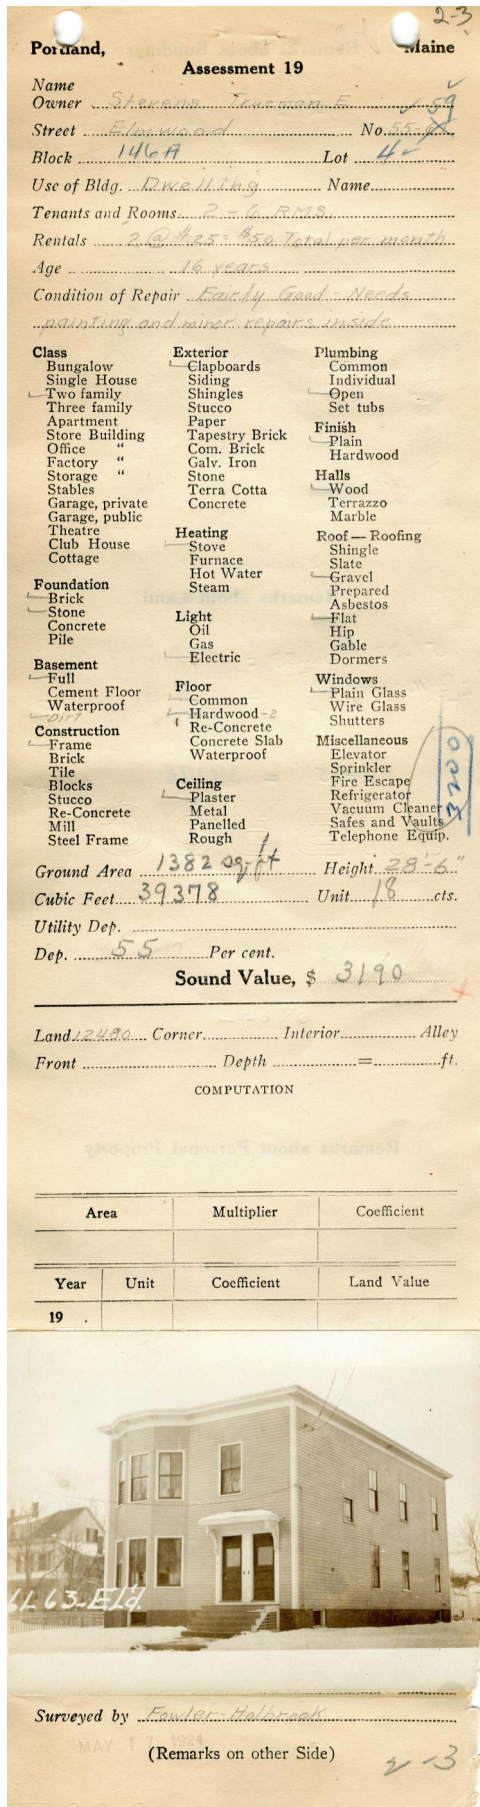 2-3
Portland, Maine
Assessment 19
Name
Owner Stevens Trueman E
Street Elmwood No. 55- 59
Block 146A Lot 4
Use of Bldg. Dwelling Name
Tenants and Rooms. 2 - 6 RMS.
Rentals 2 @ $25 = $50 Total per month
Age 16 years
Condition of Repair Fairly Good - Needs
painting and minor repairs inside
Class
Bungalow
Single House
Two family
Three family
Apartment
Store Building
Office "
Factory "
Storage "
Stables
Garage, private
Garage, public
Theatre
Club House
Cottage
Foundation
Brick
Stone
Concrete
Pile
Basement
Full
Cement Floor
Waterproof
Dirt
Construction
Frame
Brick
Tile
Blocks
Stucco
Re-Concrete
Mill
Steel Frame
Exterior
Clapboards
Siding
Shingles
Stucco
Paper
Tapestry Brick
Com. Brick
Galv. Iron
Stone
Terra Cotta
Concrete
Heating
Stove
Furnace
Hot Water
Steam
Light
Oil
Gas
Electric
Floor
Common
Hardwood - 2
Re-Concrete
Concrete Slab
Waterproof
Ceiling
Plaster
Metal
Panelled
Rough
Plumbing
Common
Individual
Open
Set tubs
Finish
Plain
Hardwood
Halls
Wood
Terrazzo
Marble
Roof — Roofing
Shingle
Slate
Gravel
Prepared
Asbestos
Flat
Hip
Gable
Dormers
Windows
Plain Glass
Wire Glass
Shutters
Miscellaneous
Elevator
Sprinkler
Fire Escape
Refrigerator
Vacuum Cleaner
Safes and Vaults
Telephone Equip.
3200
Ground Area 1382 sq. ft Height 28'-6"
Cubic Feet 39378 Unit 18 cts.
Utility Dep.
Dep. 55 Per cent.
Sound Value, $ 3190
Land 12480 Corner Interior Alley
Front Depth = ft.
COMPUTATION
Area Multiplier Coefficient
Year Unit Coefficient Land Value
19 .
63-Eld.
Surveyed by Fowler-Holbrook
MAY 17 1924
(Remarks on other Side)
2-3